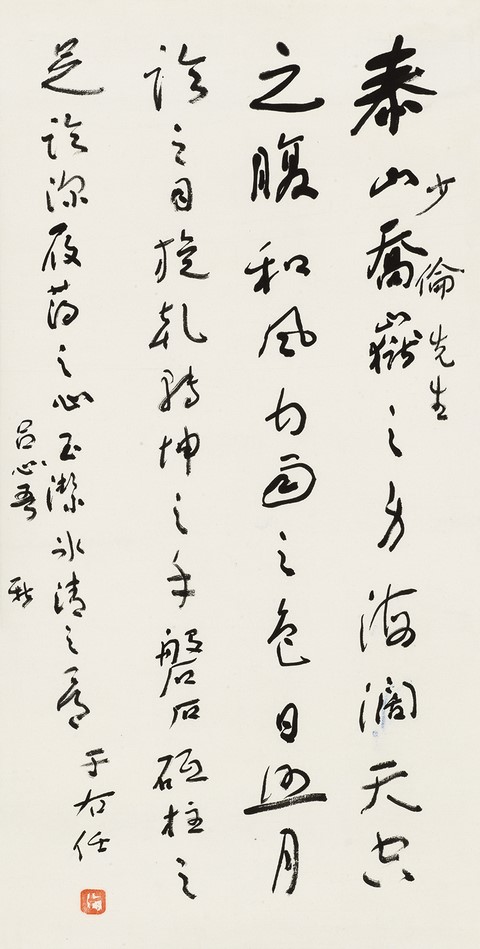 少倫先生
泰山喬嶽之身海闊天空
之腹和風甘雨之色日照月
臨之目旋乾轉坤之手磐石砥柱之
足臨深履薄之心玉潔冰清之骨
于右任
呂心吾 新